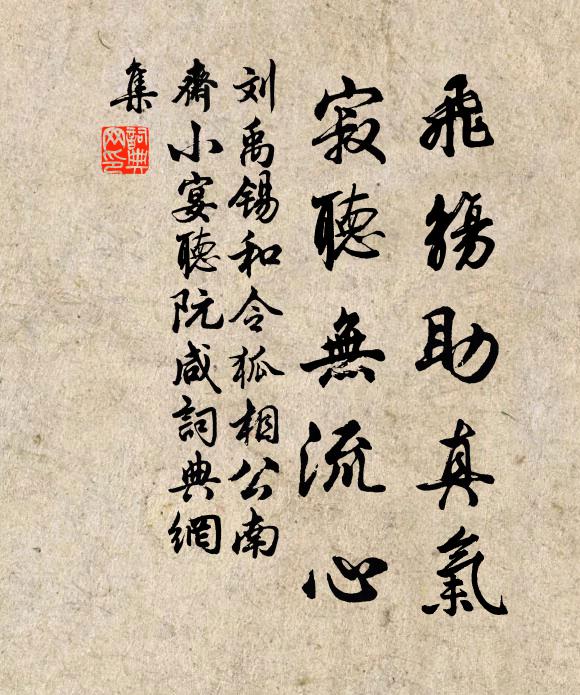 飛觴助真氣
寂聽無流心
刘禹锡和令狐相公南
齋小宴聽阮咸詞典網
集
詞典
网印